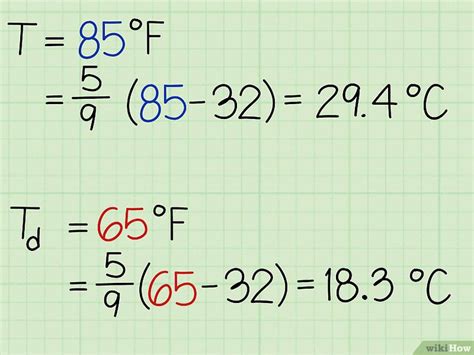 T = 85°F
= 5/9 (85-32) = 29.4 °C
Td = 65°F
= 5/9 (65-32) = 18.3 °C
wikiHow